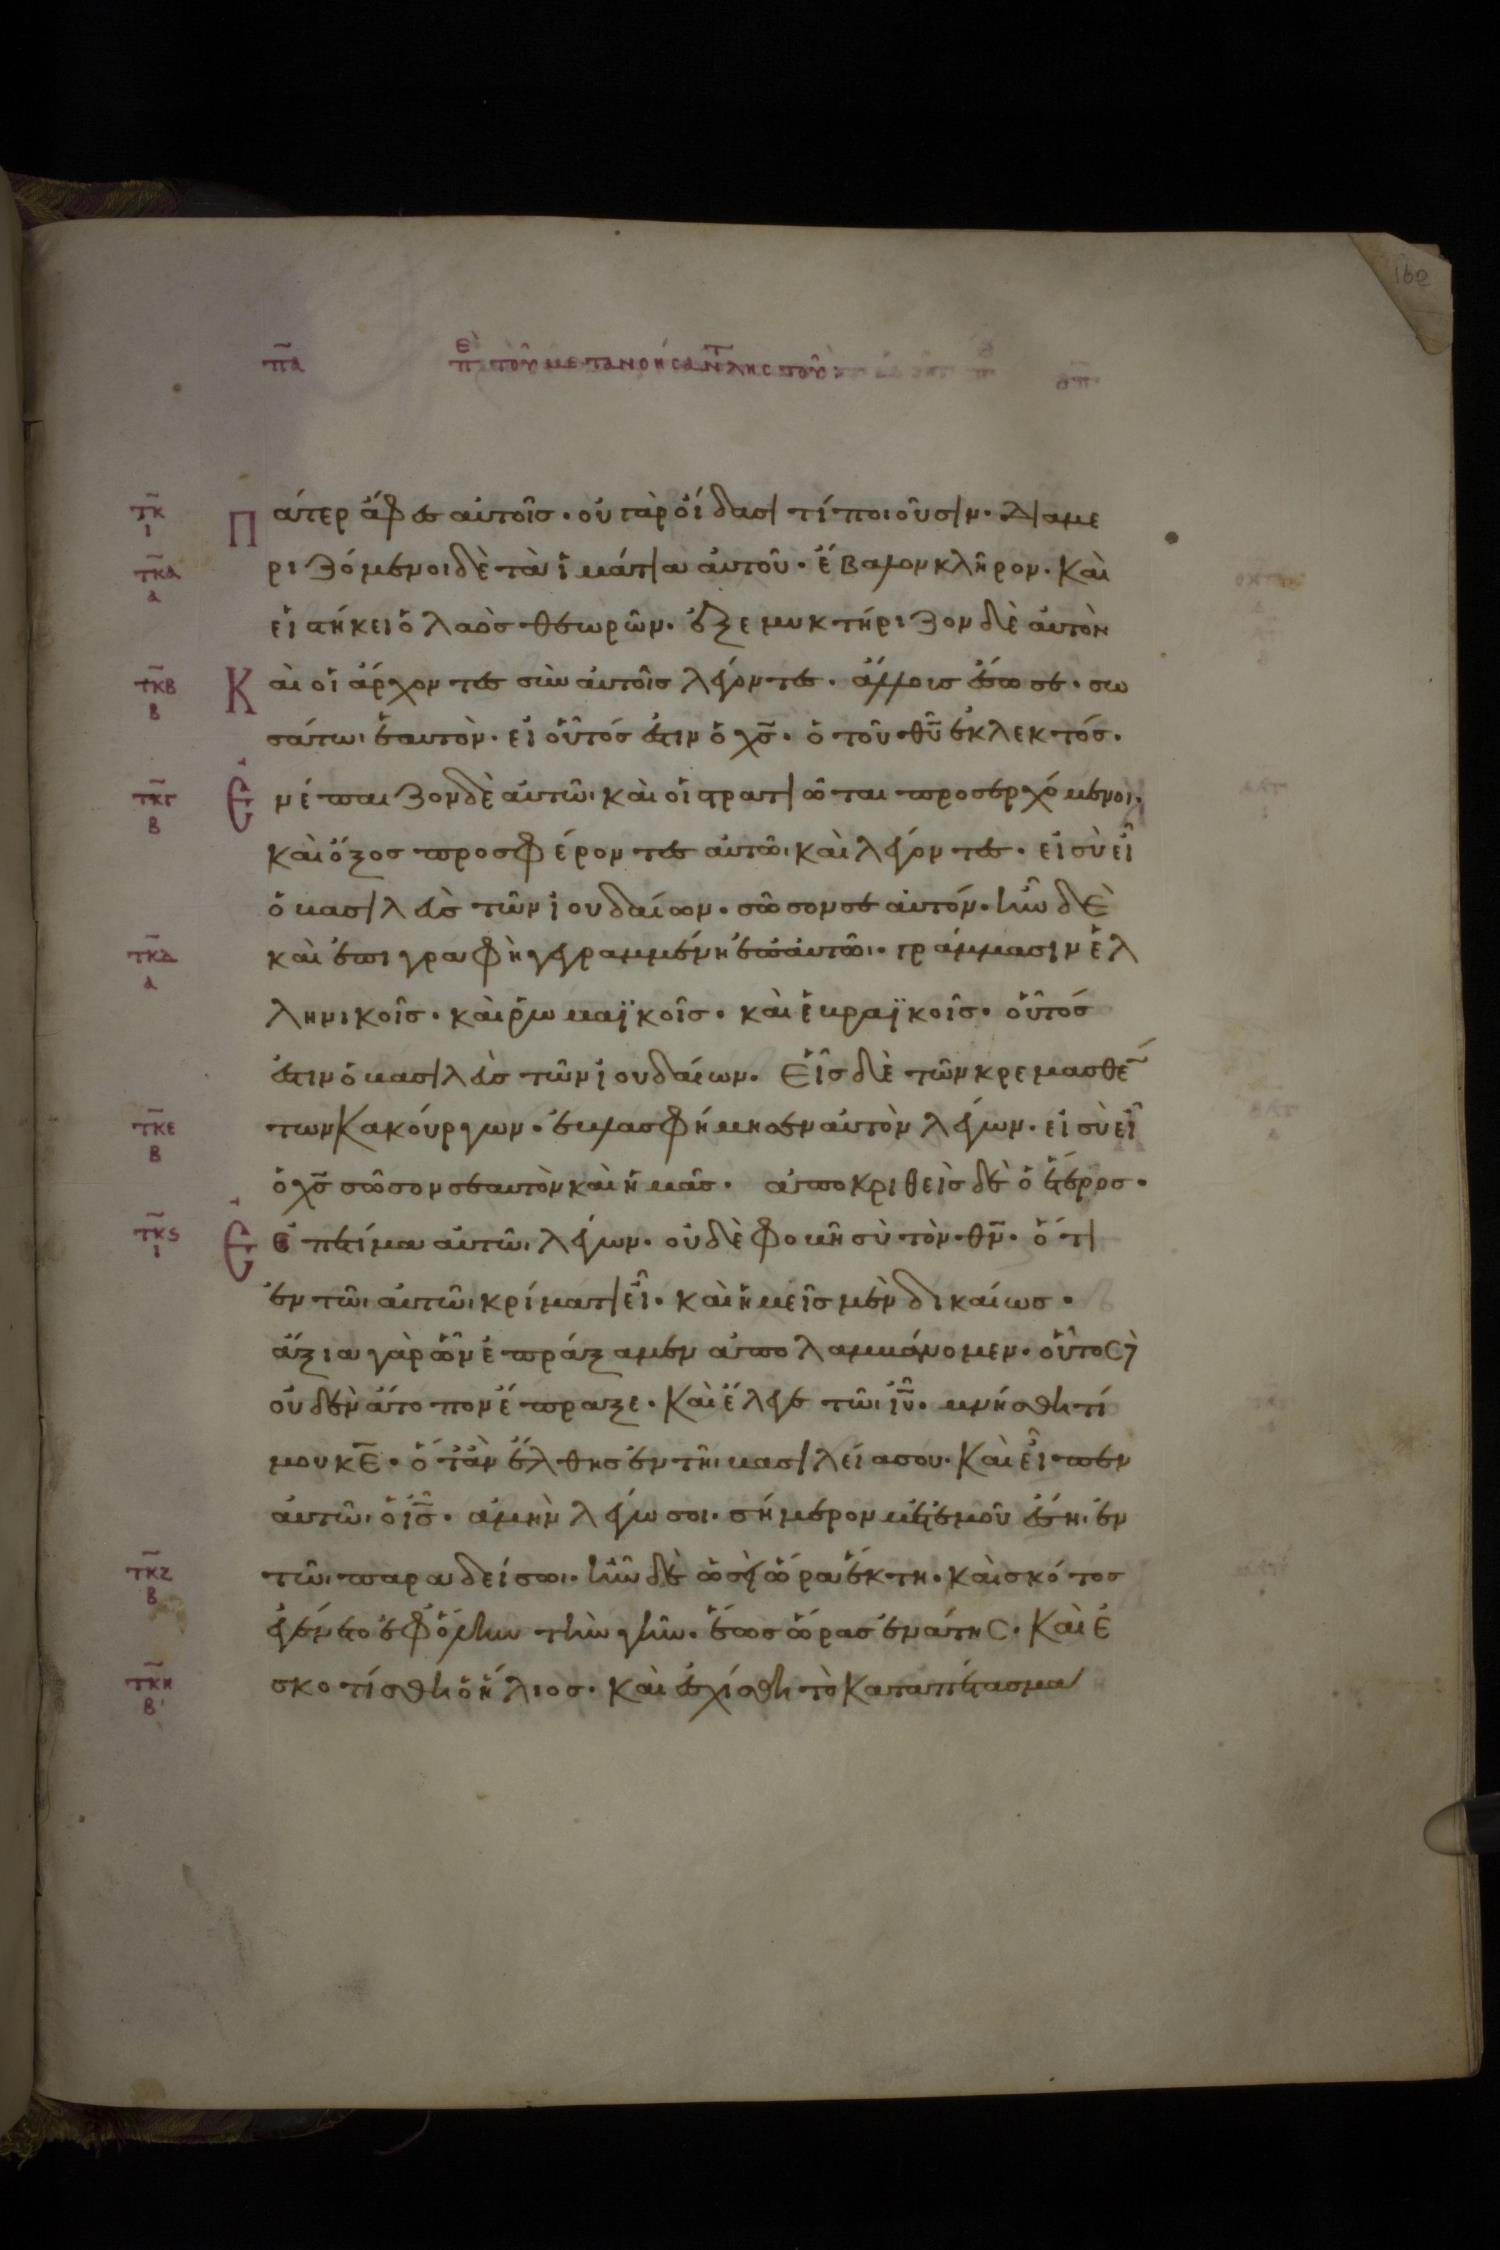 162
πα̅ ἐπὶ τοῦ μετανοήσαντ λῃστοῦ:
τκ ι Πάτερ ἄφες αὐτοῖσ· οὐ γὰρ οἴδασι τί ποιοῦσιν· Διαμε
τκα α ριζόμενοι δὲ τὰ ἱμάτια αὐτοῦ· ἔβαλλον κλῆρον· Καὶ
εἱστήκει ὁ λαὸσ θεωρῶν· ἐξεμυκτήριζον δὲ αὐτὸν
τκβ β Καὶ οἱ ἄρχοντεσ σὺν αὐτοῖσ λέγοντεσ· ἄλλουσ ἔσωσε· σω
σάτω ἑαυτὸν· εἰ οὗτόσ ἐστιν ὁ χσ̅· ὁ τοῦ θυ̅ ἐκλεκτόσ·
τκγ β Ἐνέπαιζον δὲ αὐτῶ, καὶ οἱ στρατιῶται προσερχόμενοι,
καὶ ὄξοσ προσφέροντεσ αὐτῶ, καὶ λέγοντεσ· εἰ σὺ εἶ
ὁ βασιλεὺσ τῶν ἰουδαίων· σῶσον σεαυτόν· ἦν δὲ
τκδ α καὶ ἐπιγραφὴ γεγραμμένη ἐπ' αὐτῶ· γράμμασιν ἑλ
ληνικοῖσ· καὶ ῥωμαϊκοῖσ· καὶ ἑβραϊκοῖσ· οὗτόσ
ἐστιν ὁ βασιλεὺσ τῶν ἰουδαίων· Εἷσ δὲ τῶν κρεμασθέ̅
τκε β των Κακούργων· ἐβλασφήμησεν αὐτὸν λέγων· εἰ σὺ εἶ
ὁ χσ̅ σῶσον σεαυτὸν καὶ ἡμᾶσ· ἀποκριθεὶσ δὲ ὁ ἕτεροσ·
τκϛ ι Ἐπετίμα αὐτῶ, λέγων· οὐδὲ φοβῆ σὺ τὸν θν̅· ὅτι
ἐν τῶ, αὐτῶ, κρίματι εἶ· καὶ ἡμεῖσ μὲν δικαίωσ·
ἄξια γὰρ ὧν ἐπράξαμεν ἀπολαμβάνομεν· οὗτοσ δὲ
οὐδὲν ἄτοπον ἔπραξε· Καὶ ἔλεγε τῶ, ιυ̅· μνήσθητί
μου κε̅· ὅταν ἔλθησ ἐν τῆ, βασιλεία σου· Καὶ εἶπεν
αὐτῶ, ὁ ισ̅· ἀμὴν λέγω σοι· σήμερον μετ' ἐμοῦ ἔση, ἐν
τκζ β τῶ, παραδείσω· ἦν δὲ ὡσεὶ ὥρα ἕκτη· καὶ σκότοσ
ἐγένετο ἐφ' ὅλην τὴν γῆν· ἕωσ ὥρασ ἐνάτησ· Καὶ ἐ
τκη β σκοτίσθη ὁ ἥλιοσ· καὶ ἐσχίσθη τὸ Καταπέτασμα